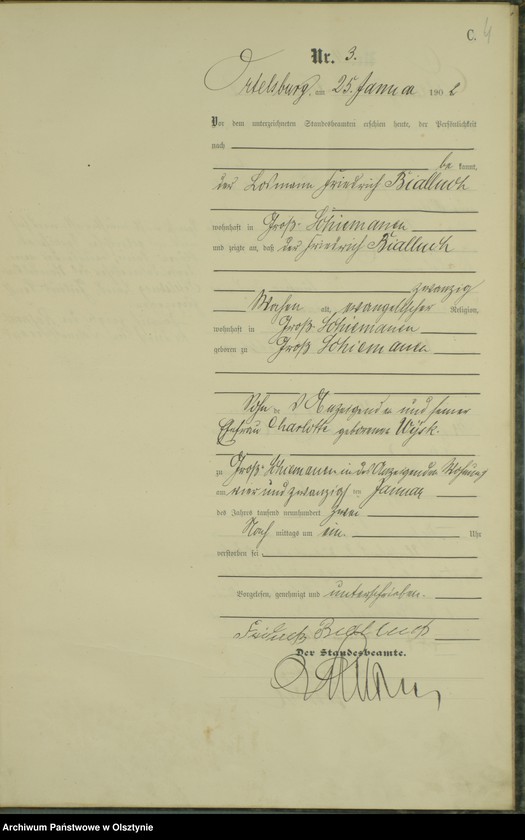 C. 4
Nr. 3.
Ortelsburg, am 25. Januar 1902
Vor dem unterzeichneten Standesbeamten erschien heute, der Persönlichkeit
nach
be kannt,
der Losmann Friedrich Bialluch
wohnhaft in Groß-Schiemanen
und zeigte an, daß der Friedrich Bialluch
zwanzig
Wochen alt, evangelischer Religion,
wohnhaft in Groß-Schiemanen
geboren zu Groß Schiemanen
Sohn des Anzeigenden und seiner
Ehefrau Charlotte geborene
zu Groß-Schiemanen in des Anzeigenden Wohnung
am vier und zwanzigsten Januar
des Jahres tausend neunhundert zwei
Nach mittags um ein Uhr
verstorben sei
Vorgelesen, genehmigt und unterschrieben.
Der Standesbeamte.
Archiwum Państwowe w Olsztynie